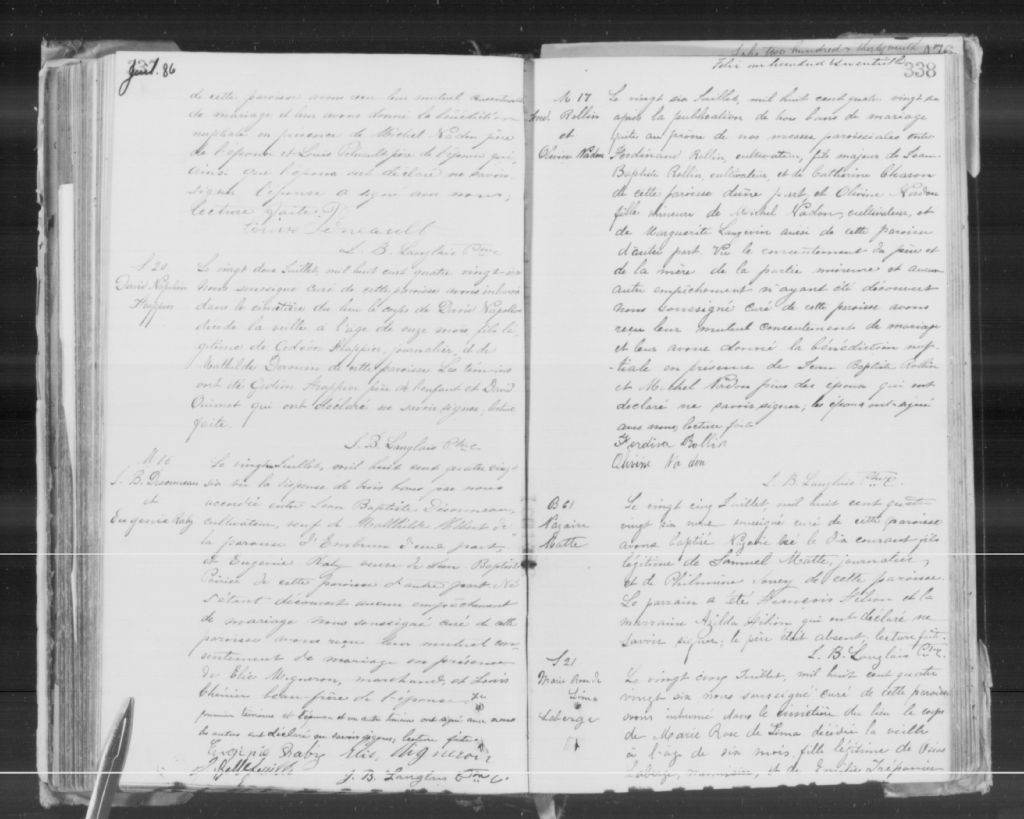 337
Juil. 86
de cette paroisse avons reçu leur mutuel consentement
de mariage et leur avons donné la bénédiction
nuptiale en présence de Michel Nadon père
de l'époux et Louis père de l'épouse qui,
ainsi que l'époux ont déclaré ne savoir
signer l'épouse a signé avec nous,
lecture faite.
J. B. Langlais Ptre C
S 20
David Napoléon
Frappier
Le vingt deux Juillet, mil huit cent quatre vingt six
nous soussigné curé de cette paroisse avons inhumé
dans le cimetière du lieu le corps de David Napoléon
décédé la veille à l'âge de onze mois fils lé-
gitime de Gédéon Frappier, journalier, et de
Mathilde de cette paroisse. Les témoins
ont été Gédéon Frappier père de l'enfant et David
Ouimet qui ont déclaré ne savoir signer, lecture
faite.
J. B. Langlais Ptre C
M 16
J. B.
et
Eugénie Raby
Le vingt Juillet, mil huit cent quatre vingt
six vu la dispense de trois bans par nous
accordée entre Jean Baptiste
cultivateur, veuf de Mathilde de
la paroisse d'Embrun d'une part,
et Eugénie Raby veuve de Jean Baptiste
de cette paroisse d'autre part. Ne
s'étant découvert aucun empêchement
de mariage nous soussigné curé de cette
paroisse avons reçu leur mutuel con-
sentement de mariage en présence
de Elie Migneron, marchand, et Louis
Thérien beau-frère de l'épouse. Le
premier témoin et l'épouse et un autre témoin ont signé avec nous
les autres ont déclaré ne savoir signer, lecture faite
Eugénie Raby Elie Migneron
J. B. Langlais Ptre C.
Folio two hundred & thirty ninth
338
M 17
Ferd. Rollin
et
Olivine Nadon
Le vingt six Juillet, mil huit cent quatre vingt six
après la publication de trois bans de mariage
faite au prône de nos messes paroissiales entre
Ferdinand Rollin, cultivateur, fils majeur de Jean
Baptiste Rollin, cultivateur, et de Catherine Gleason
de cette paroisse d'une part, et Olivine Nadon
fille mineure de Michel Nadon, cultivateur, et
de Marguerite Langevin aussi de cette paroisse
d'autre part. Vu le consentement du père et
de la mère de la partie mineure et aucun
autre empêchement n'ayant été découvert
nous soussigné curé de cette paroisse avons
reçu leur mutuel consentement de mariage
et leur avons donné la bénédiction nup-
tiale en présence de Jean Baptiste Rollin
et Michel Nadon pères des époux qui ont
déclaré ne savoir signer; les époux ont signé
avec nous, lecture faite
Ferdina Rollin
Olivine Nadon
J. B. Langlais Ptre C.
B 61
Nazaire
Matte
Le vingt cinq Juillet, mil huit cent quatre
vingt six nous soussigné curé de cette paroisse
avons baptisé Nazaire né le du courant fils
légitime de Samuel Matte, journalier,
et de Philomène de cette paroisse.
Le parrain a été François Filion et la
marraine Azilda Filion qui ont déclaré ne
savoir signer; le père était absent, lecture faite.
J. B. Langlais Ptre C.
S 21
Marie Rose de
Lima
Laberge
Le vingt cinq Juillet, mil huit cent quatre
vingt six nous soussigné curé de cette paroisse
avons inhumé dans le cimetière du lieu le corps
de Marie Rose de Lima décédée la veille
à l'âge de six mois, fille légitime de Pierre
Laberge, et de Emilie Trépanier